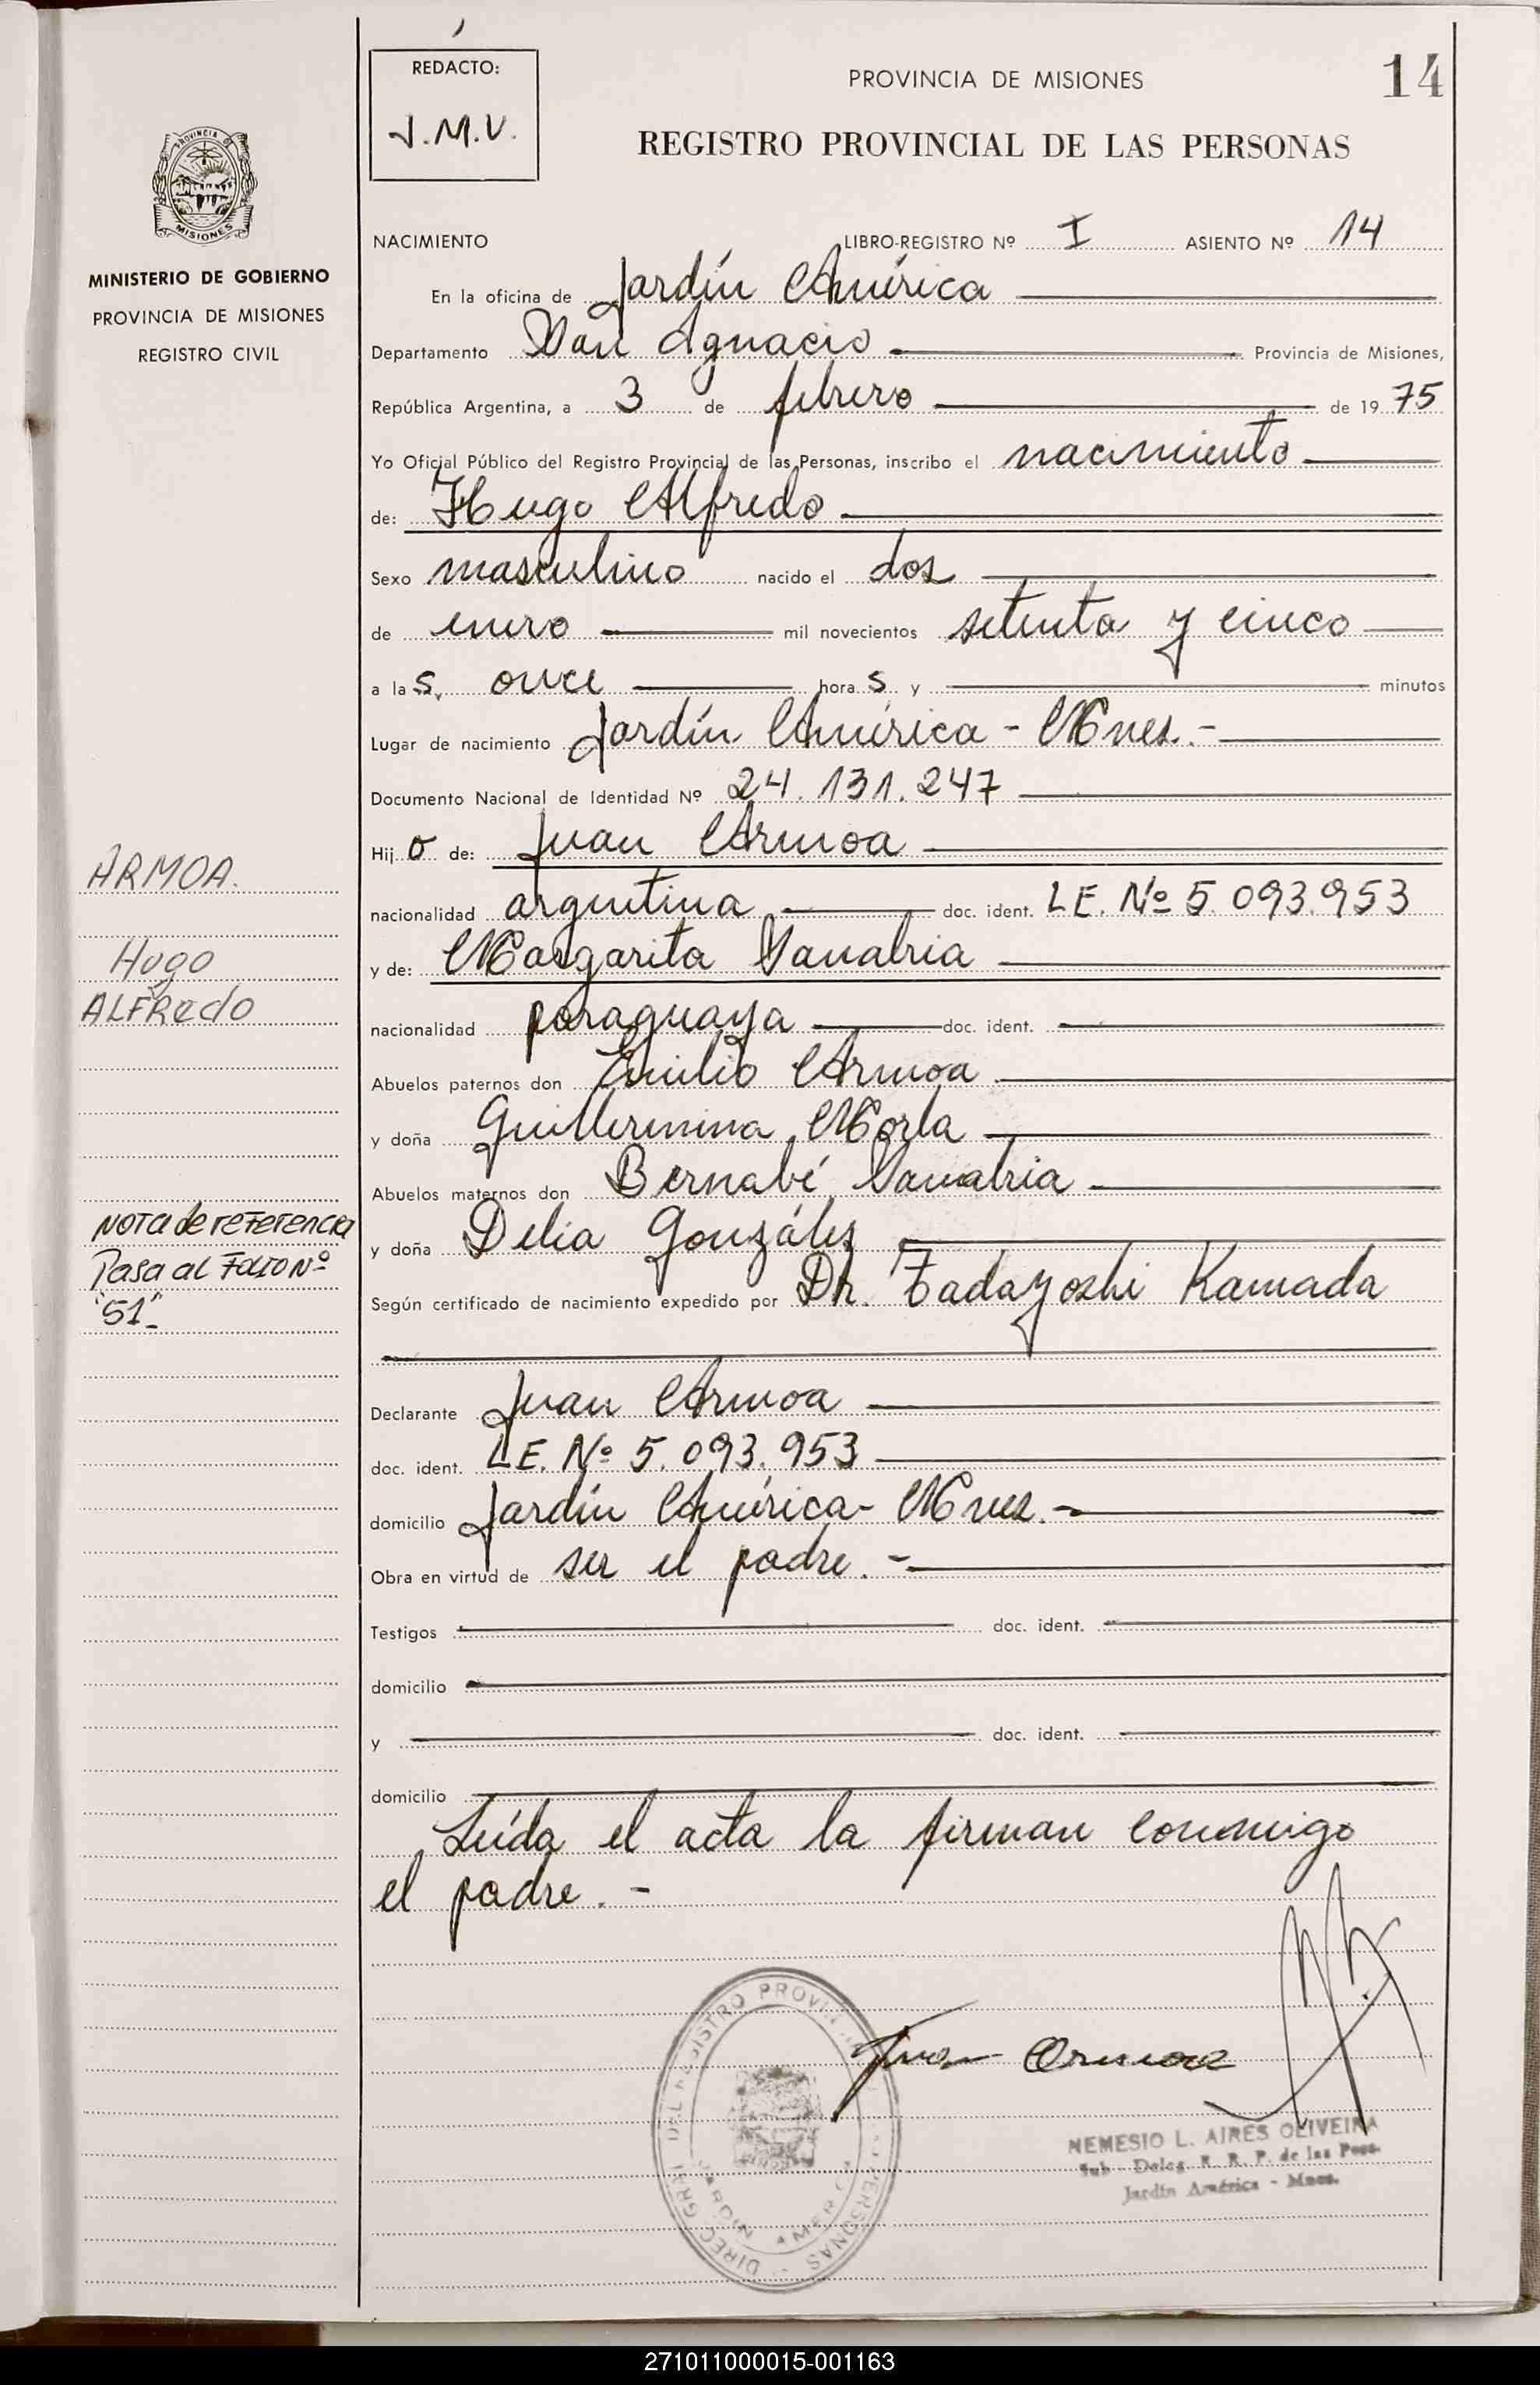 REDACTO:
J.M.V.
PROVINCIA DE MISIONES
14
REGISTRO PROVINCIAL DE LAS PERSONAS
PROVINCIA DE
MISIONES
MINISTERIO DE GOBIERNO
PROVINCIA DE MISIONES
REGISTRO CIVIL
NACIMIENTO LIBRO-REGISTRO Nº I ASIENTO Nº 14
En la oficina de Jardín América
Departamento San Ignacio Provincia de Misiones,
República Argentina, a 3 de febrero de 19 75
Yo Oficial Público del Registro Provincial de las Personas, inscribo el nacimiento
de: Hugo Alfredo
Sexo masculino nacido el dos
de enero mil novecientos setenta y cinco
a la s. once hora s y minutos
Lugar de nacimiento Jardín América - Mnes.-
Documento Nacional de Identidad Nº 24.131.247
Hij o de: Juan Armoa
nacionalidad argentina doc. ident. L.E. Nº 5.093.953
y de: Margarita Sanabria
nacionalidad paraguaya doc. ident.
Abuelos paternos don Emilio Armoa
y doña Guillermina Morla
Abuelos maternos don Bernabé Sanabria
y doña Delia González
Según certificado de nacimiento expedido por Dr. Tadayoshi Kamada
Declarante Juan Armoa
doc. ident. L.E. Nº 5.093.953
domicilio Jardín América - Mnes.-
Obra en virtud de ser el padre.-
Testigos doc. ident.
domicilio
y doc. ident.
domicilio
Leída el acta la firman conmigo
el padre.-
ARMOA.
Hugo
ALFRedo
NOTA de reFerencia
Pasa al Folio Nº
"51"-
Juan Armoa
DIREC. GRAL. DEL REGISTRO PROVINCIAL PERSONAS
JARDIN AMERICA
NEMESIO L. AIRES OLIVEIRA
Sub - Deleg. R. P. de las Pers.
Jardín América - Mnes.
271011000015-001163